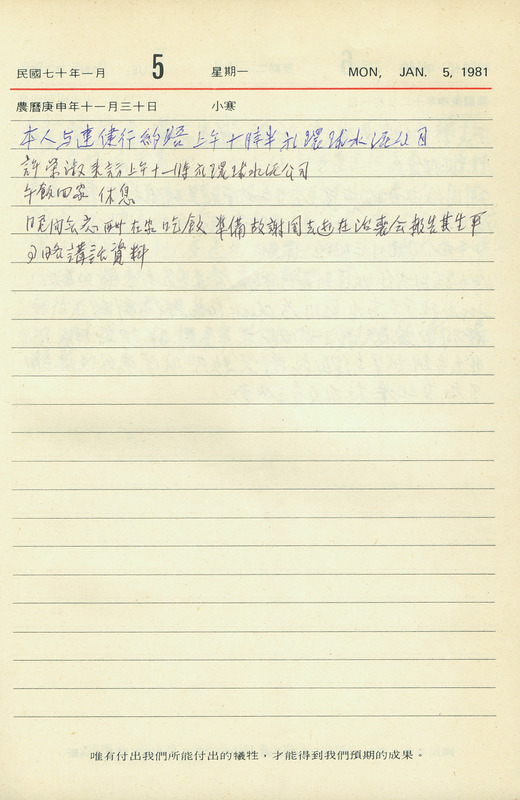 民國七十年一月 5 星期一 MON, JAN. 5, 1981
農曆庚申年十一月三十日 小寒
本人与連健行約晤上午十時半於環球水泥公司
許榮淑來訪上午十一時於環球水泥公司
午飯回家 休息
晚間 在家吃飯 準備故謝國 在治喪會報告其生平
略講話資料
唯有付出我們所能付出的犧牲，才能得到我們預期的成果。